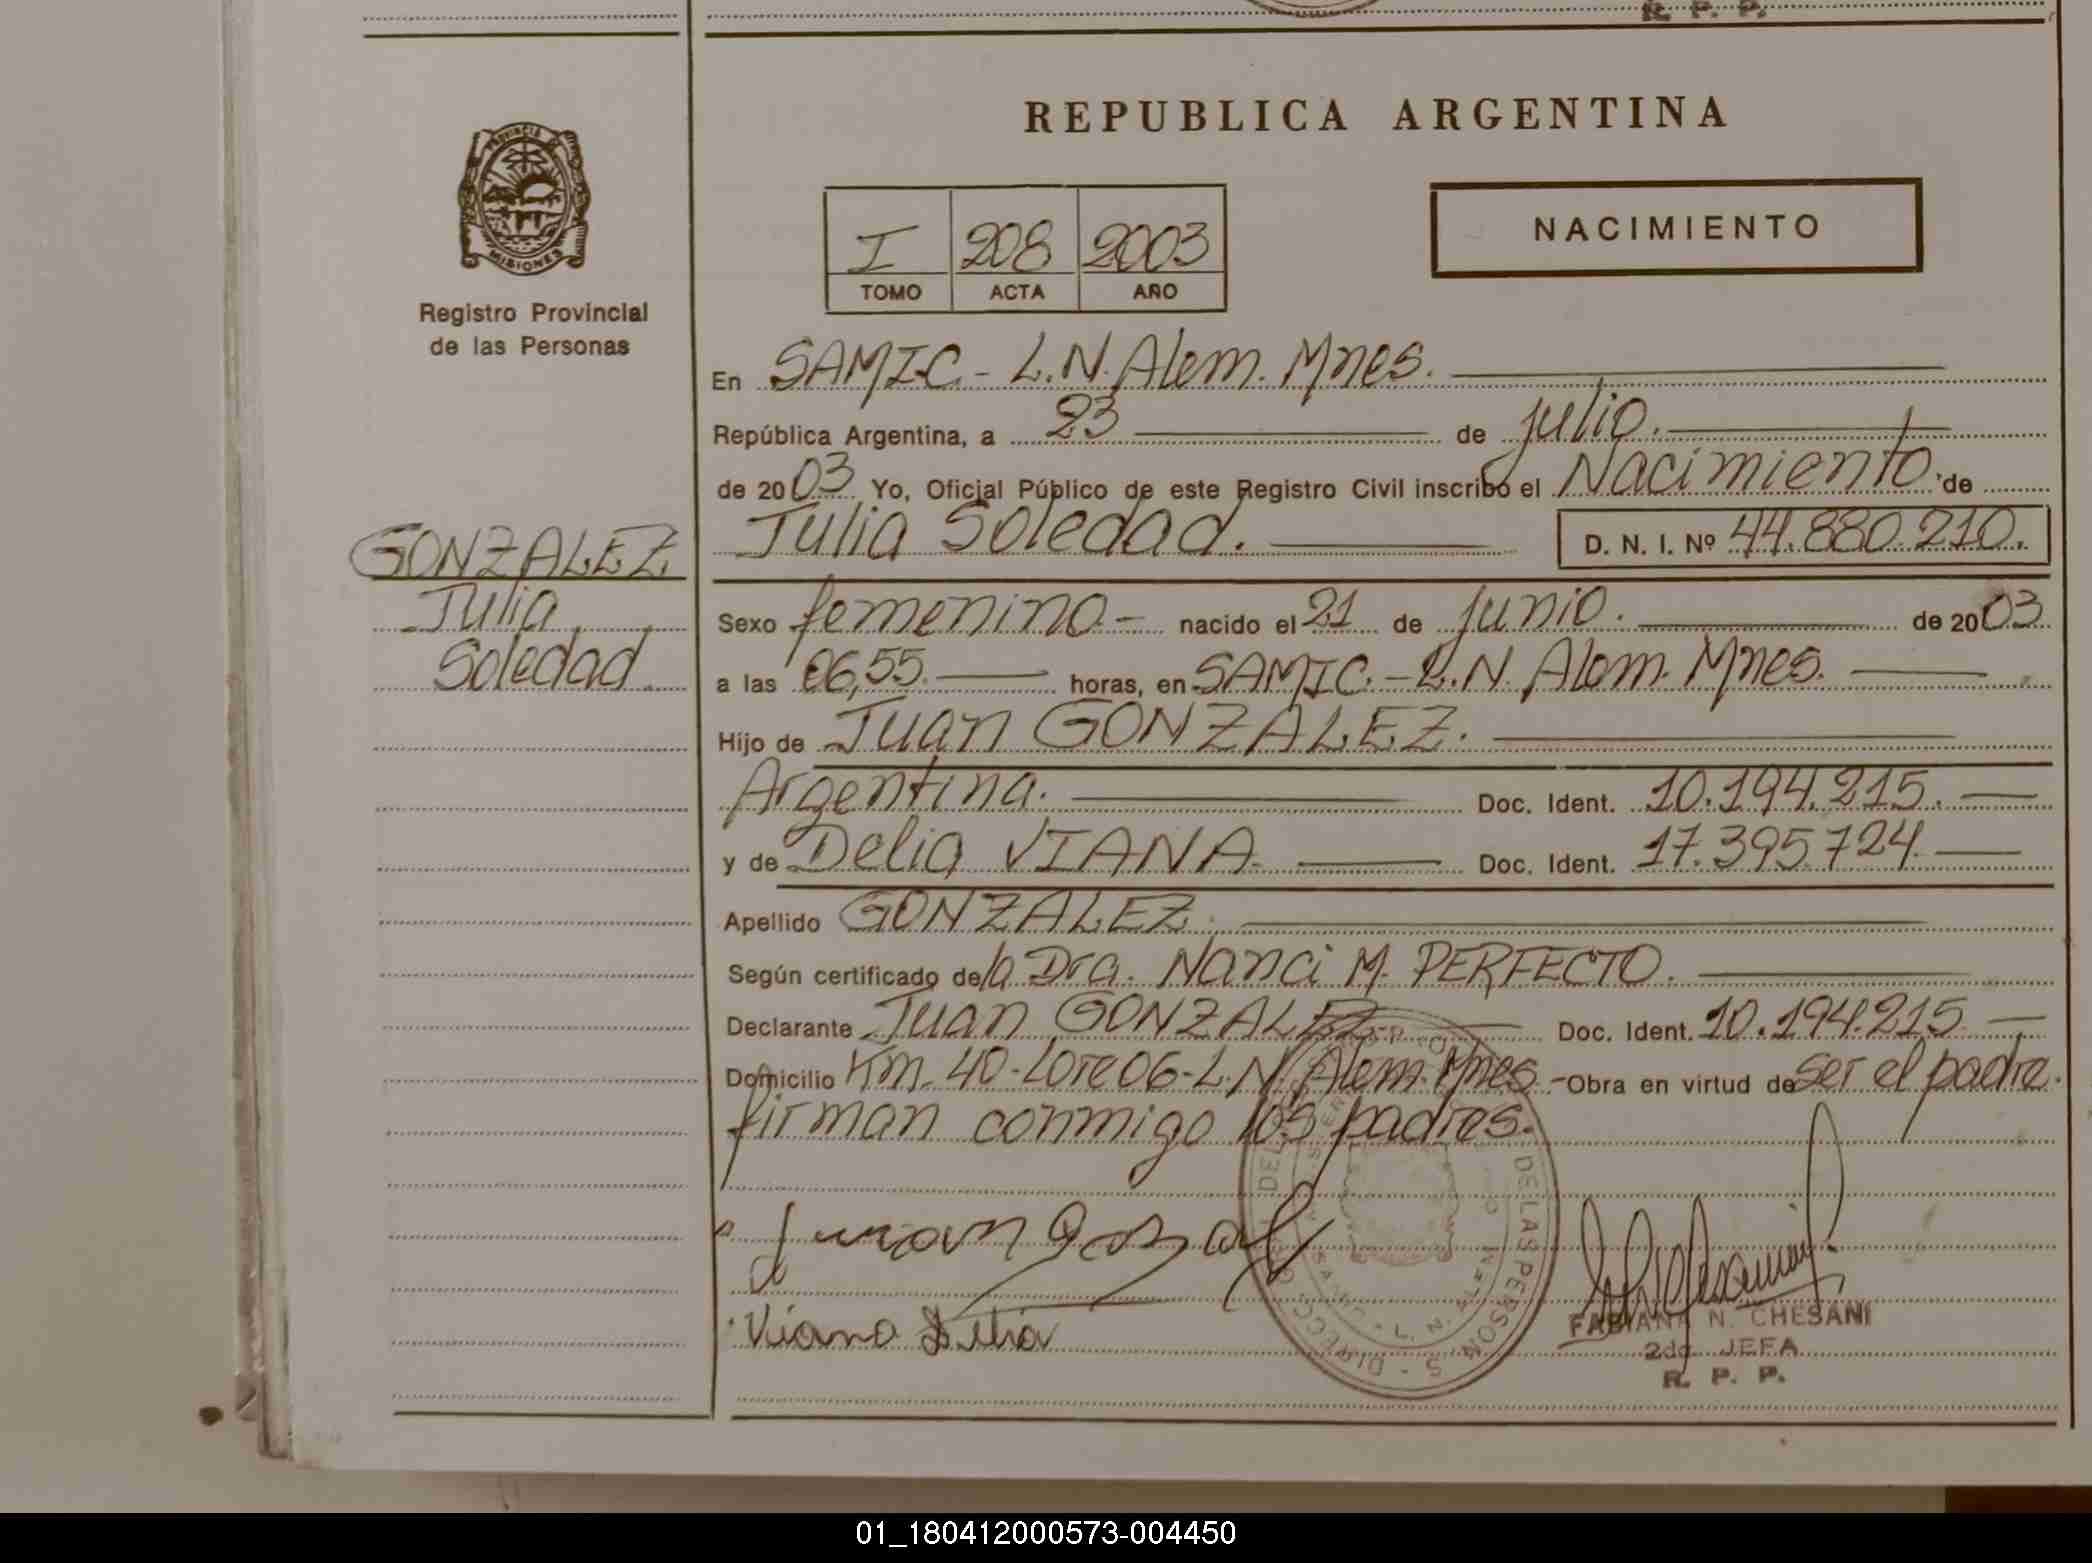 R. P. P.
REPUBLICA ARGENTINA
PROVINCIA DE
MISIONES
Registro Provincial
de las Personas
NACIMIENTO
I 208 2003
TOMO ACTA AÑO
En SAMIC.- L.N. Alem. Mnes.
República Argentina, a 23 de julio.
de 2003 Yo, Oficial Público de este Registro Civil inscribo el Nacimiento de
Julia Soledad. D. N. I. Nº 44.880.210.
GONZALEZ
Julia
Soledad
Sexo femenino - nacido el 21 de junio. de 2003
a las 06,55. horas, en SAMIC.-L.N. Alem. Mnes.
Hijo de Juan GONZALEZ.
Argentina. Doc. Ident. 10.194.215.
y de Delia VIANA. Doc. Ident. 17.395.724.
Apellido GONZALEZ.
Según certificado de la Dra. Nanci M. PERFECTO.
Declarante Juan GONZALEZ.- Doc. Ident. 10.194.215
Domicilio Km. 40-Lote 06-L.N. Alem. Mnes.- Obra en virtud de ser el padre.
firman conmigo los padres.
Viana Delia
FABIANA N. CHESANI
2da JEFA
R. P. P.
01_180412000573-004450